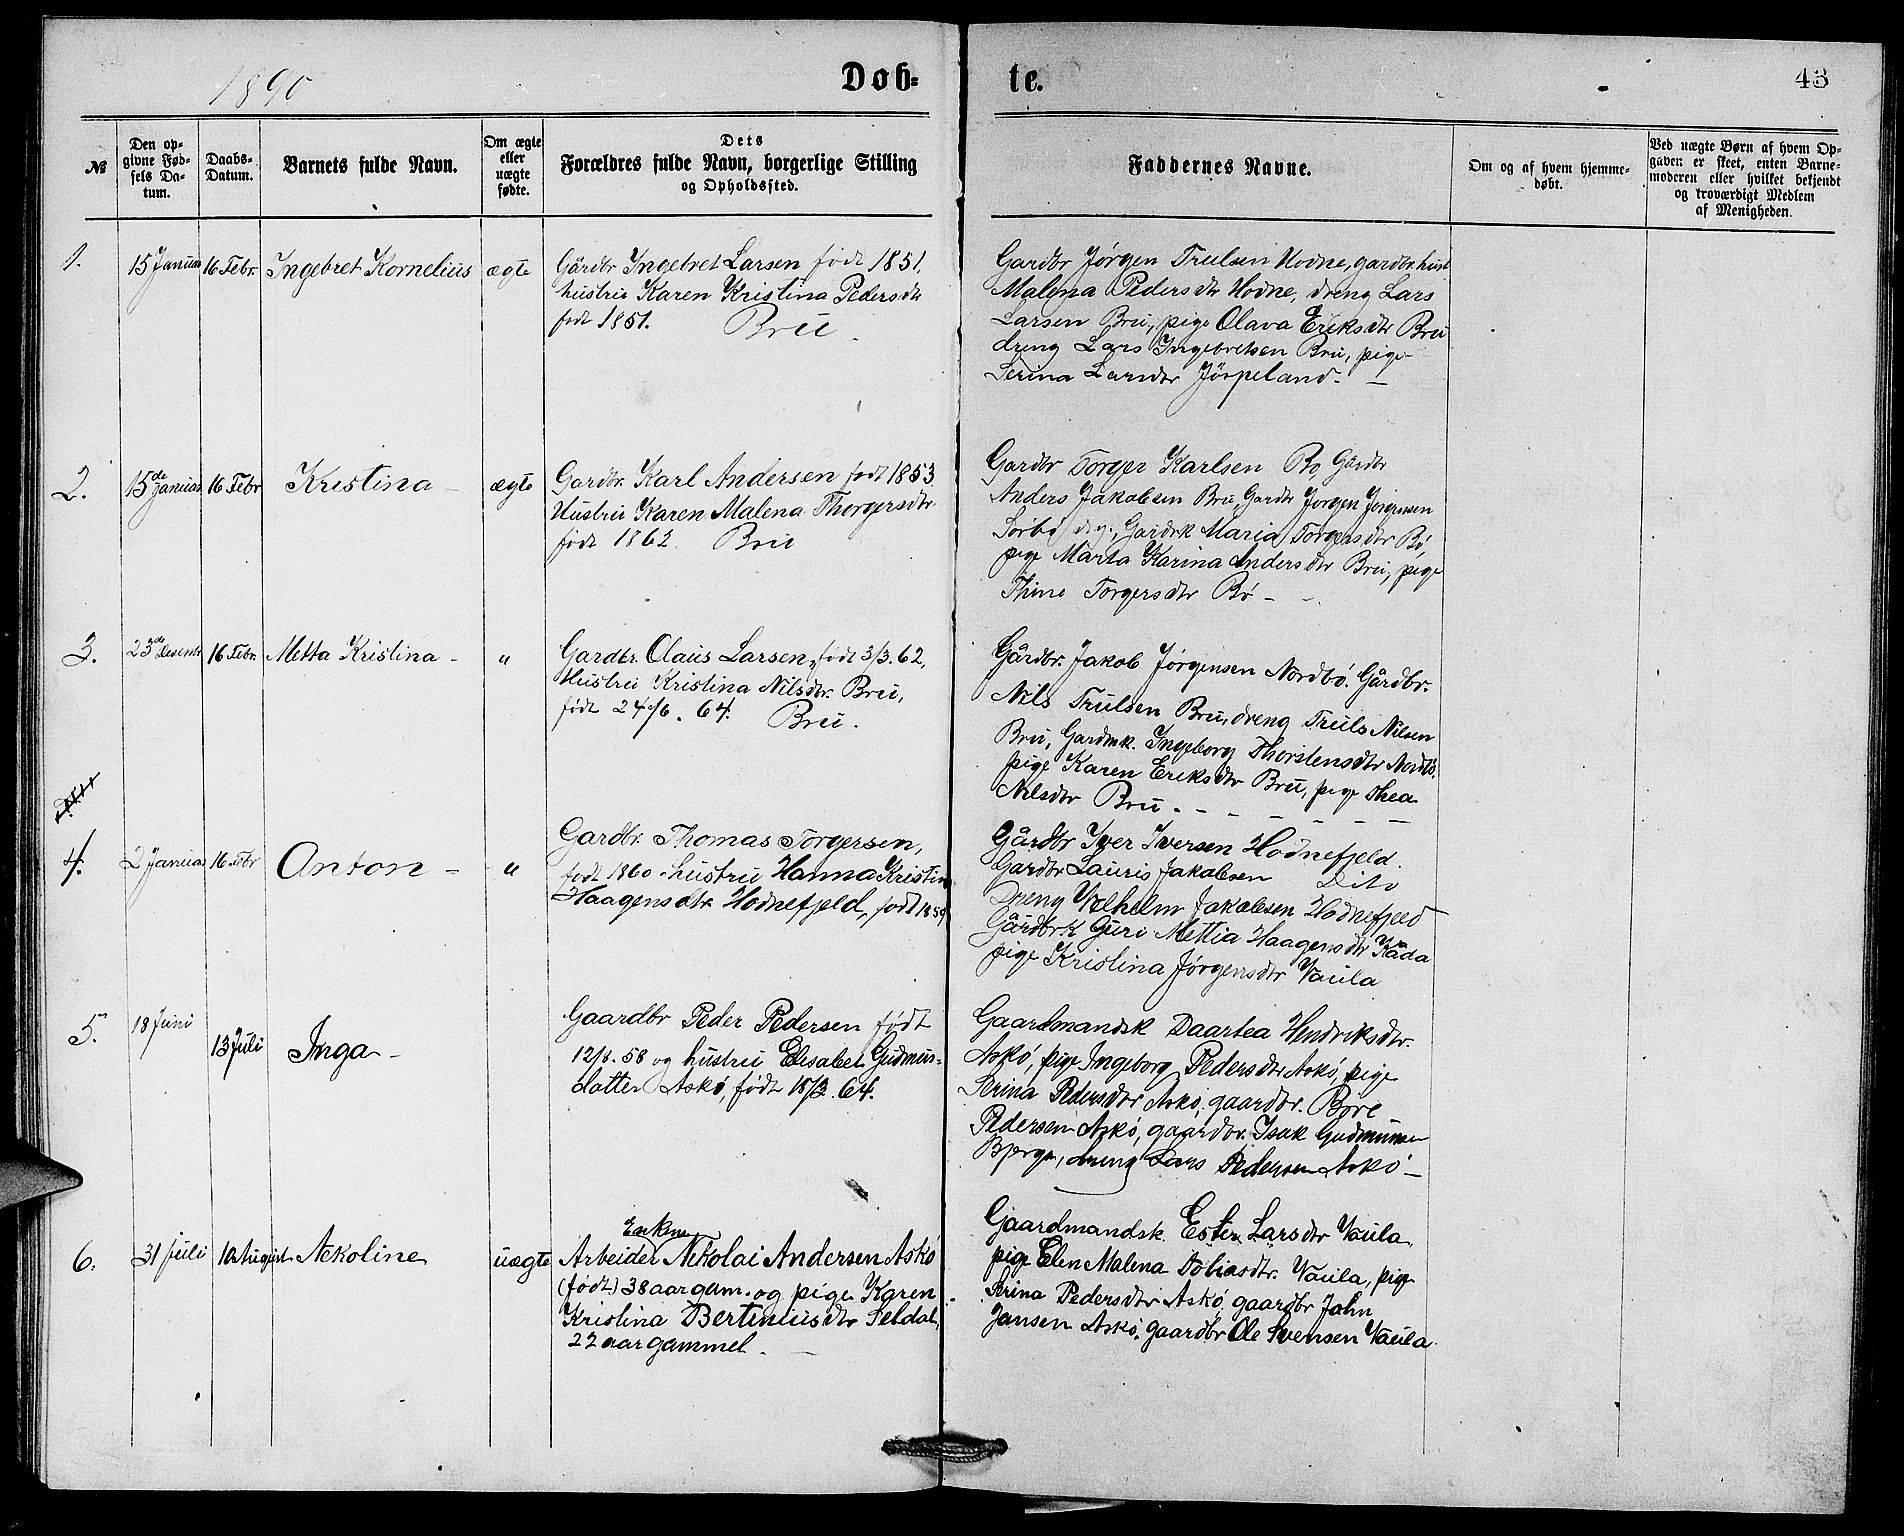 1890
Døb-
te.
43
№
Den op-
givne Fød-
sels Da-
tum.
Daabs-
Datum.
Barnets fulde Navn.
Om ægte
eller
uægte
fødte.
Dets
Forældres fulde Navn, borgerlige Stilling
og Opholdssted.
Faddernes Navne.
Om og af hvem hjemme-
døbt.
Ved uægte Børn af hvem Op-
gaven er skeet, enten Barne-
moderen eller hvilket bekjendt
og troværdigt Medlem
af Menigheden.
1.
15 Januar
16 Febr.
Ingebret Kornelius
ægte
Gårdbr Ingebret Larsen født 1851,
hustru Karen Kristina Pedersdtr
født 1851. Bru
Gardbr Jørgen Trulsen Hodne, gardbr. hust
Malena Pedersdtr Hodne, dreng Lars
Larsen Bru, pige Olava Eriksdtr Bru
dreng Lars Ingebretsen Bru, pige
Serina Larsdtr Jörpeland. —
2.
15de Januar
16 Febr
Kristina —
ægte
Gardbr. Karl Andersen født 1853
Hustru Karen Malena Thorgersdtr
født 1862. Bru
Gardbr Torger Karlsen Bø, Gårdbr
Anders Jakobsen Bru, Gardbr Jørgen Jørgensen
Sørbø, Gardbrk Maria Torgersdtr Bø,
pige Marta Karina Andersdtr Bru, pige
Thine Torgersdtr Bø —
3.
23de Desembr
16 Febr.
Metta Kristina —
"
Gardbr. Claus Larsen, født 3/3. 62,
Hustru Kristina Nilsdtr. Bru,
født 24/6. 64. Bru.
Gårdbr. Jakob Jørgensen Nordbø. Gårdbr.
Nils Trulsen Bru, dreng Truls Nilsen
Bru, Gardmk. Ingeborg Thorstensdtr Nordb.
pige Karen Eriksdtr Bru, pige Thea
Nilsdtr Bru. — — — — — —
4.
2 Januar
16 Febr
Anton —
"
Gardbr. Thomas Torgersen,
født 1860. hustru Hanna Kristin
Haagensdtr Hodnefjeld, født 1859
Gårdbr Iver Iversen Hodnefjeld.
Gardbr Lauris Jakobsen Dito
Dreng Vilhelm Jakobsen Hodnefjeld
Gårdbrk Guri Mettia Haagensdtr Kada
pige Kristina Jørgensdtr Vaula
5.
18 Juni
13 Juli
Inga —
Gaardbr Peder Pedersen født
12/8. 58 og hustru Elisabet Gudmus-
datter Askø, født 18/3. 64.
Gaardmandsk Daartea Hendriksdtr.
Askø, pige Ingeborg Pedersdtr Askø, pige
Serina Pedersdtr Askø, gaardbr. Bore
Pedersen Askø, gaardbr. Isak Gudmunsen
Bjerga, dreng Lars Pedersen Askø —
6.
31 Juli
10 August
Nekoline
uægte
Enkem
Arbeider Nekolai Andersen Askø
(født) 38 aar gam. og pige Karen
Kristina Bertiniusdtr Seldal,
22 aar gammel. —
Gaardmandsk. Ester Larsdtr Vaula,
pige Elen Malena Tobiasdtr. Vaula, pige
Serina Pedersdtr Askø, gaardbr John
Jansen Askø, gaardbr Ole Svensen Vaula